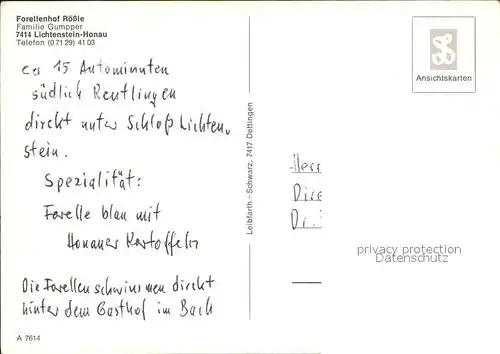 Forellenhof Rößle
Familie Gumpper
7414 Lichtenstein-Honau
Telefon (0 71 29) 41 03
ca 15 Autominuten
südlich Reutlingen
direkt unter Schloß Lichten-
stein.
Spezialität:
Forelle blau mit
Honauer Kartoffeln
Die Forellen schwimmen direkt
hinter dem Gasthof im Bach
A 7614
Leibfarth + Schwarz, 7417 Dettingen
Ansichtskarten
Herr
Dire
Dr.
privacy protection
Datenschutz